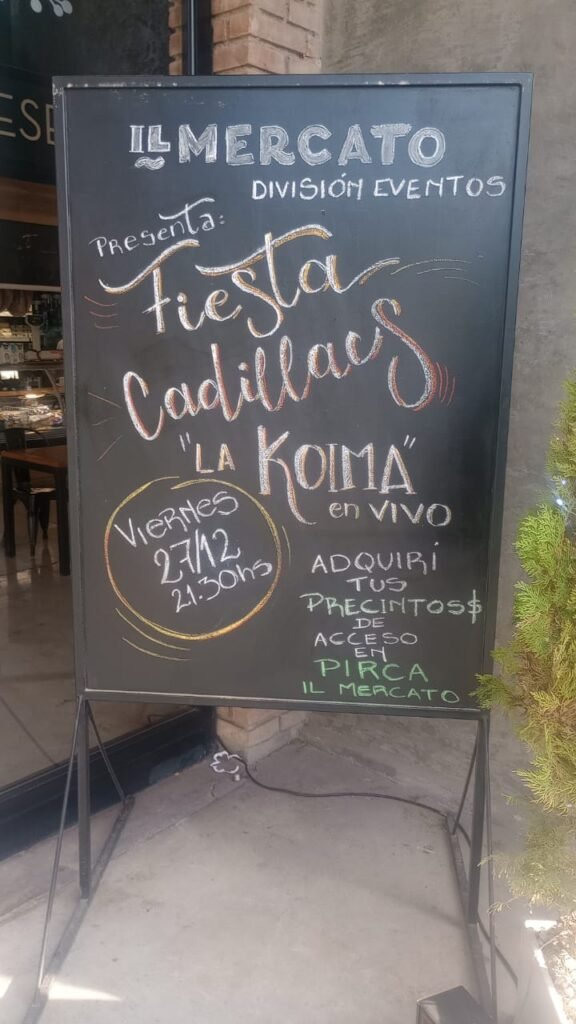 ESE
IL MERCATO
DIVISIÓN EVENTOS
Presenta:
Fiesta
Cadillacs
"LA KOIMA"
en VIVO
Viernes
27/12
21:30hs
ADQUIRÍ
TUS
PRECINTOS$
DE
ACCESO
EN
PIRCA
IL MERCATO